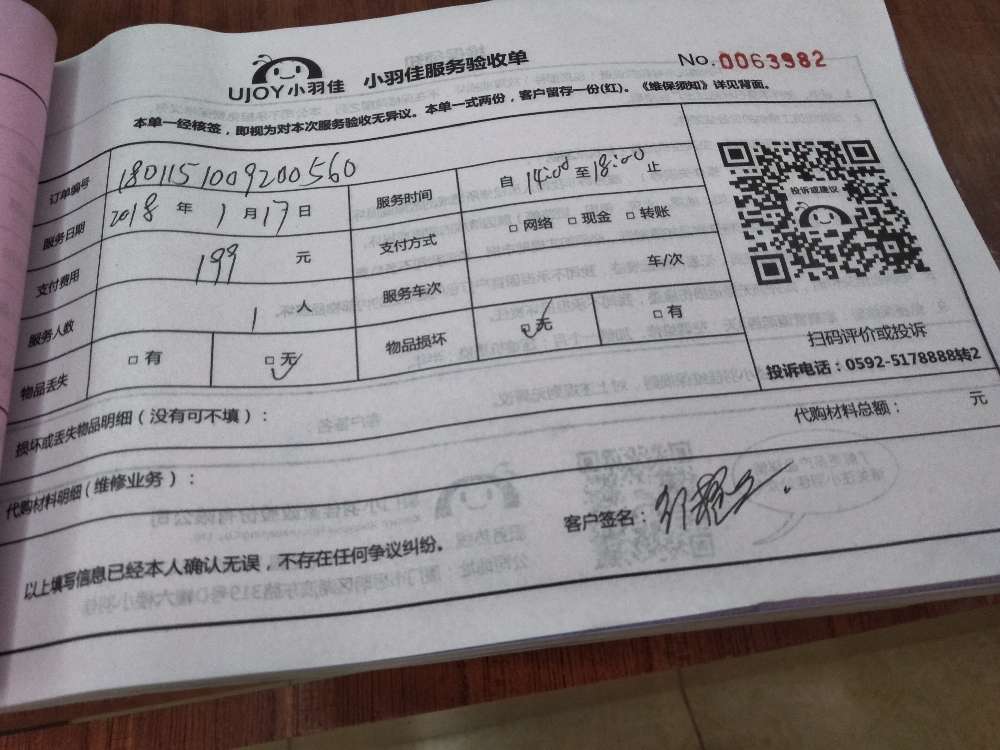 UJOY小羽佳 小羽佳服务验收单 No. 0063982
本单一经核签，即视为对本次服务验收无异议。本单一式两份，客户留存一份(红)。《维保须知》详见背面。
订单编号 1801151009200560 服务时间 自 14:00 至 18:00 止
服务日期 2018 年 1 月 17 日 支付方式 □ 网络 □ 现金 □ 转账
支付费用 199 元 服务车次 车/次
服务人数 1 人 物品损坏 □ 无 □ 有
物品丢失 □ 有 □ 无
投诉或建议
扫码评价或投诉
投诉电话：0592-5178888转2
损坏或丢失物品明细（没有可不填）：
代购材料总额： 元
代购材料明细（维修业务）：
客户签名：
以上填写信息已经本人确认无误，不存在任何争议纠纷。